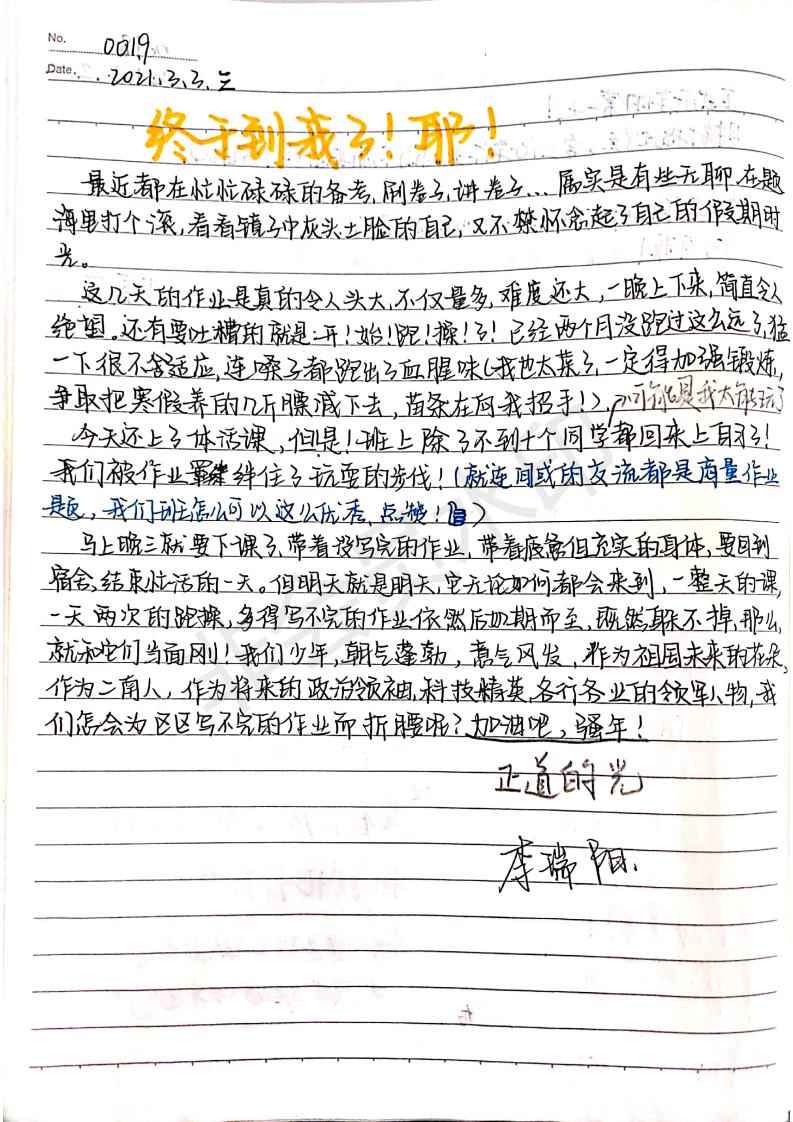 No. 0019
Date. 2021.3.3.三
终于到我了！耶！
最近都在忙忙碌碌的备考，刷卷子，讲卷子...属实是有些无聊，在题
海里打个滚，看看镜子中灰头土脸的自己，又不禁怀念起了自己的假期时
光。
这几天的作业是真的令人头大，不仅量多，难度还大，一晚上下来，简直令人
绝望。还有要吐槽的就是：开！始！跑！操！了！已经两个月没跑过这么远了，猛
一下很不舍适应，连嗓子都跑出了血腥味（我也太菜了，一定得加强锻炼，
争取把寒假养的几斤膘减下去，苗条在向我招手！），可能是我太能玩了
今天还上了体活课，但是！班上除了不到十个同学都回来上自习了！
我们被作业绊住了玩耍的步伐！（就连间或的交流都是商量作业
题，我们班怎么可以这么优秀，点赞！）
马上晚三就要下课了，带着没写完的作业，带着疲惫但充实的身体，要回到
宿舍，结束忙活的一天。但明天就是明天，它无论如何都会来到，一整天的课，
一天两次的跑操，多得写不完的作业依然后如期而至，既然躲不掉，那么，
就和它们当面刚！我们少年，朝气蓬勃，意气风发，作为祖国未来的花朵，
作为二南人，作为将来的政治领袖，科技精英，各行各业的领军人物，我
们怎会为区区写不完的作业而折腰呢？加油吧，骚年！
正道的光
李瑞阳.
非会员水印